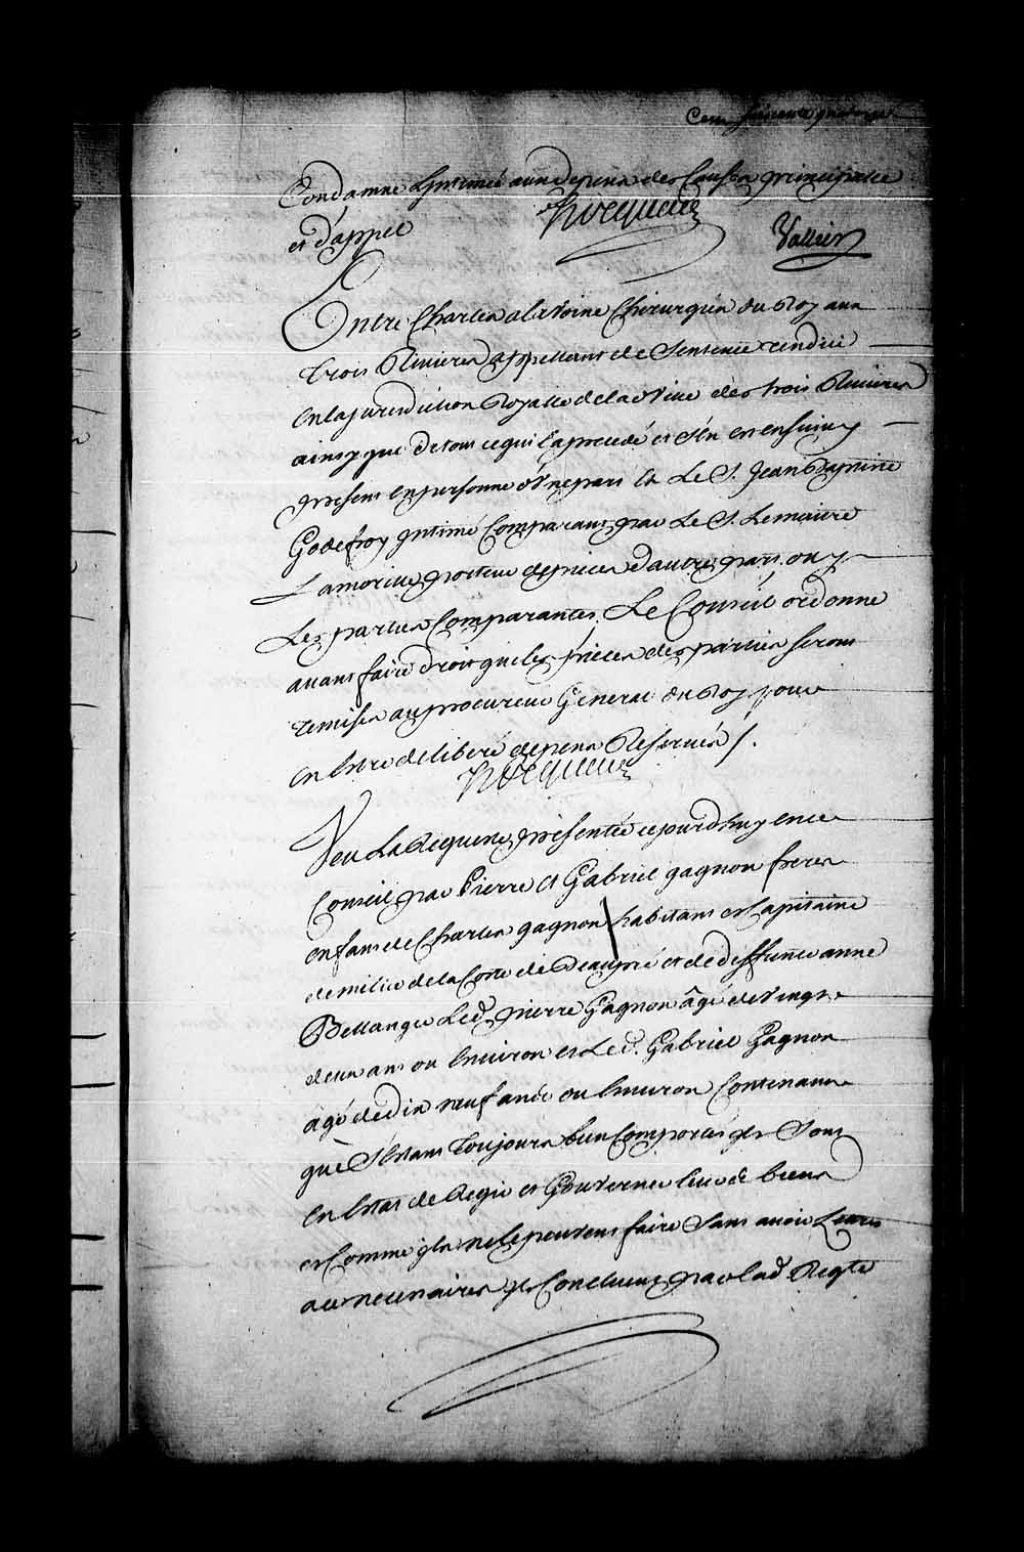 Cent soixante quatorze
Condamne Lintimé aux depens des Causes principalle
et d'appel
Hocquart
Vallier
Entre Charles alavoine Chirurgien du Roy aux
trois Rivieres appellant de Sentence rendüe
en la jurisdiction Royalle de la Ville des trois Rivieres
ainsy que de tout ce qui l'a precedé et s'en est ensuivy
present en personne d'Vne part Et Le S. Jean Baptiste
Godefroy intimé Comparant par Le S. Lemaitre
Lamorille porteur de pieces d'autre part, ouy
Les parties Comparantes, Le Conseil ordonne
avant faire droit que les pieces des parties seront
remises au procureur General du Roy pour
en Estre deliberé depens Reservés /.
Hocquart
Veu La Requeste presentée ce jourd'huy en ce
Conseil par Pierre et Gabriel gagnon freres
enfans de Charles gagnon habitant et Capitaine
de milice de la Coste de Beaupré et de deffunte anne
Bellanger Led. pierre Gagnon âgé de Vingt
deux ans ou Environ et Led. Gabriel Gagnon
agé de dix neuf ans ou Environ Contenant
que S'étant toujours bien Comportés ils Sont
en Estat de Regir et Gouverner leurs biens
et Comme ils ne le peuvent faire Sans avoir Leurs
ace necessaires ils Concluent par lad. Reqte